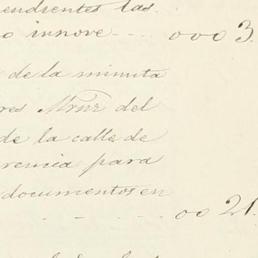 pendientes las
o innove --- ooo 3.
de la minuta
res Mruz del
de la calle de
para
documentos en
- - - - oo 21.